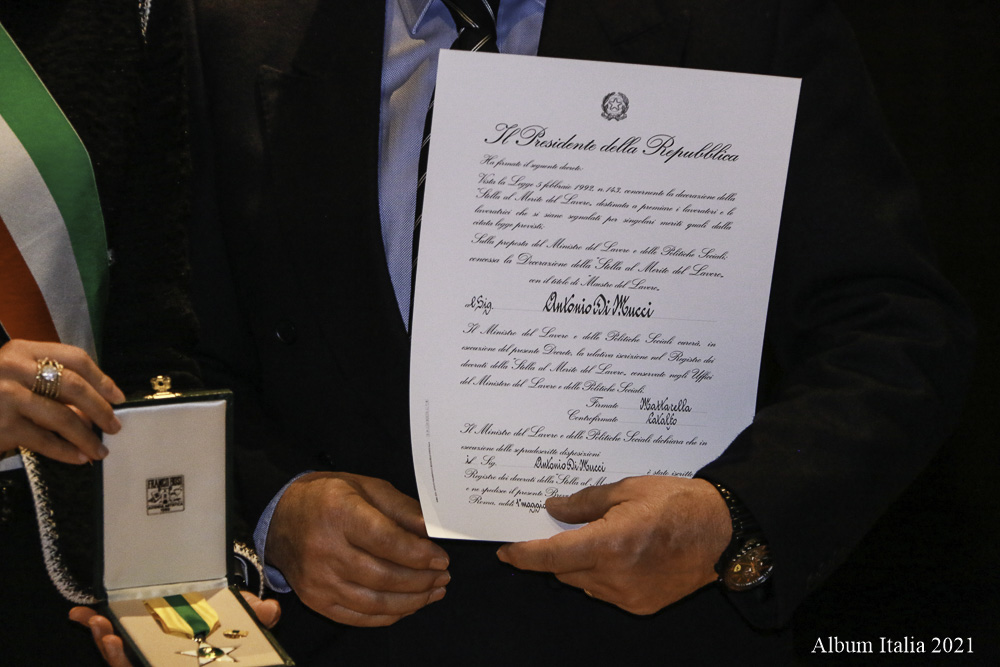 Il Presidente della Repubblica
Ha firmato il seguente decreto:
Vista la Legge 5 febbraio 1992, n. 143, concernente la decorazione della
"Stella al Merito del Lavoro", destinata a premiare i lavoratori e le
lavoratrici che si siano segnalati per singolari meriti quali dalla
citata legge previsti;
Sulla proposta del Ministro del Lavoro e delle Politiche Sociali;
concessa la Decorazione della "Stella al Merito del Lavoro",
con il titolo di "Maestro del Lavoro",
al Sig. Antonio Di Mucci
Il Ministro del Lavoro e delle Politiche Sociali curerà, in
esecuzione del presente Decreto, la relativa iscrizione nel Registro dei
decorati della "Stella al Merito del Lavoro", conservato negli Uffici
del Ministero del Lavoro e delle Politiche Sociali.
Firmato Mattarella
Controfirmato Catalfo
Il Ministro del Lavoro e delle Politiche Sociali dichiara che in
esecuzione delle sopradescritte disposizioni
il Sig. Antonio Di Mucci è stato iscritto
Registro dei decorati della "Stella al
e ne spedisce il presente
Roma, addì 1° maggio
Album Italia 2021